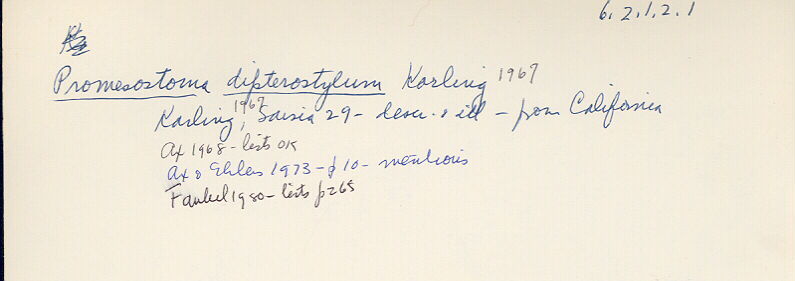 6.2.1.2.1
Promesostoma dipterostylum Karling 1967
Karling, 1967, Sarsia 29 - descr. & ill - from California
Ax 1968 - lists OK
Ax & Ehlers 1973 - p 10 - mentions
Faubel 1980 - lists p 265